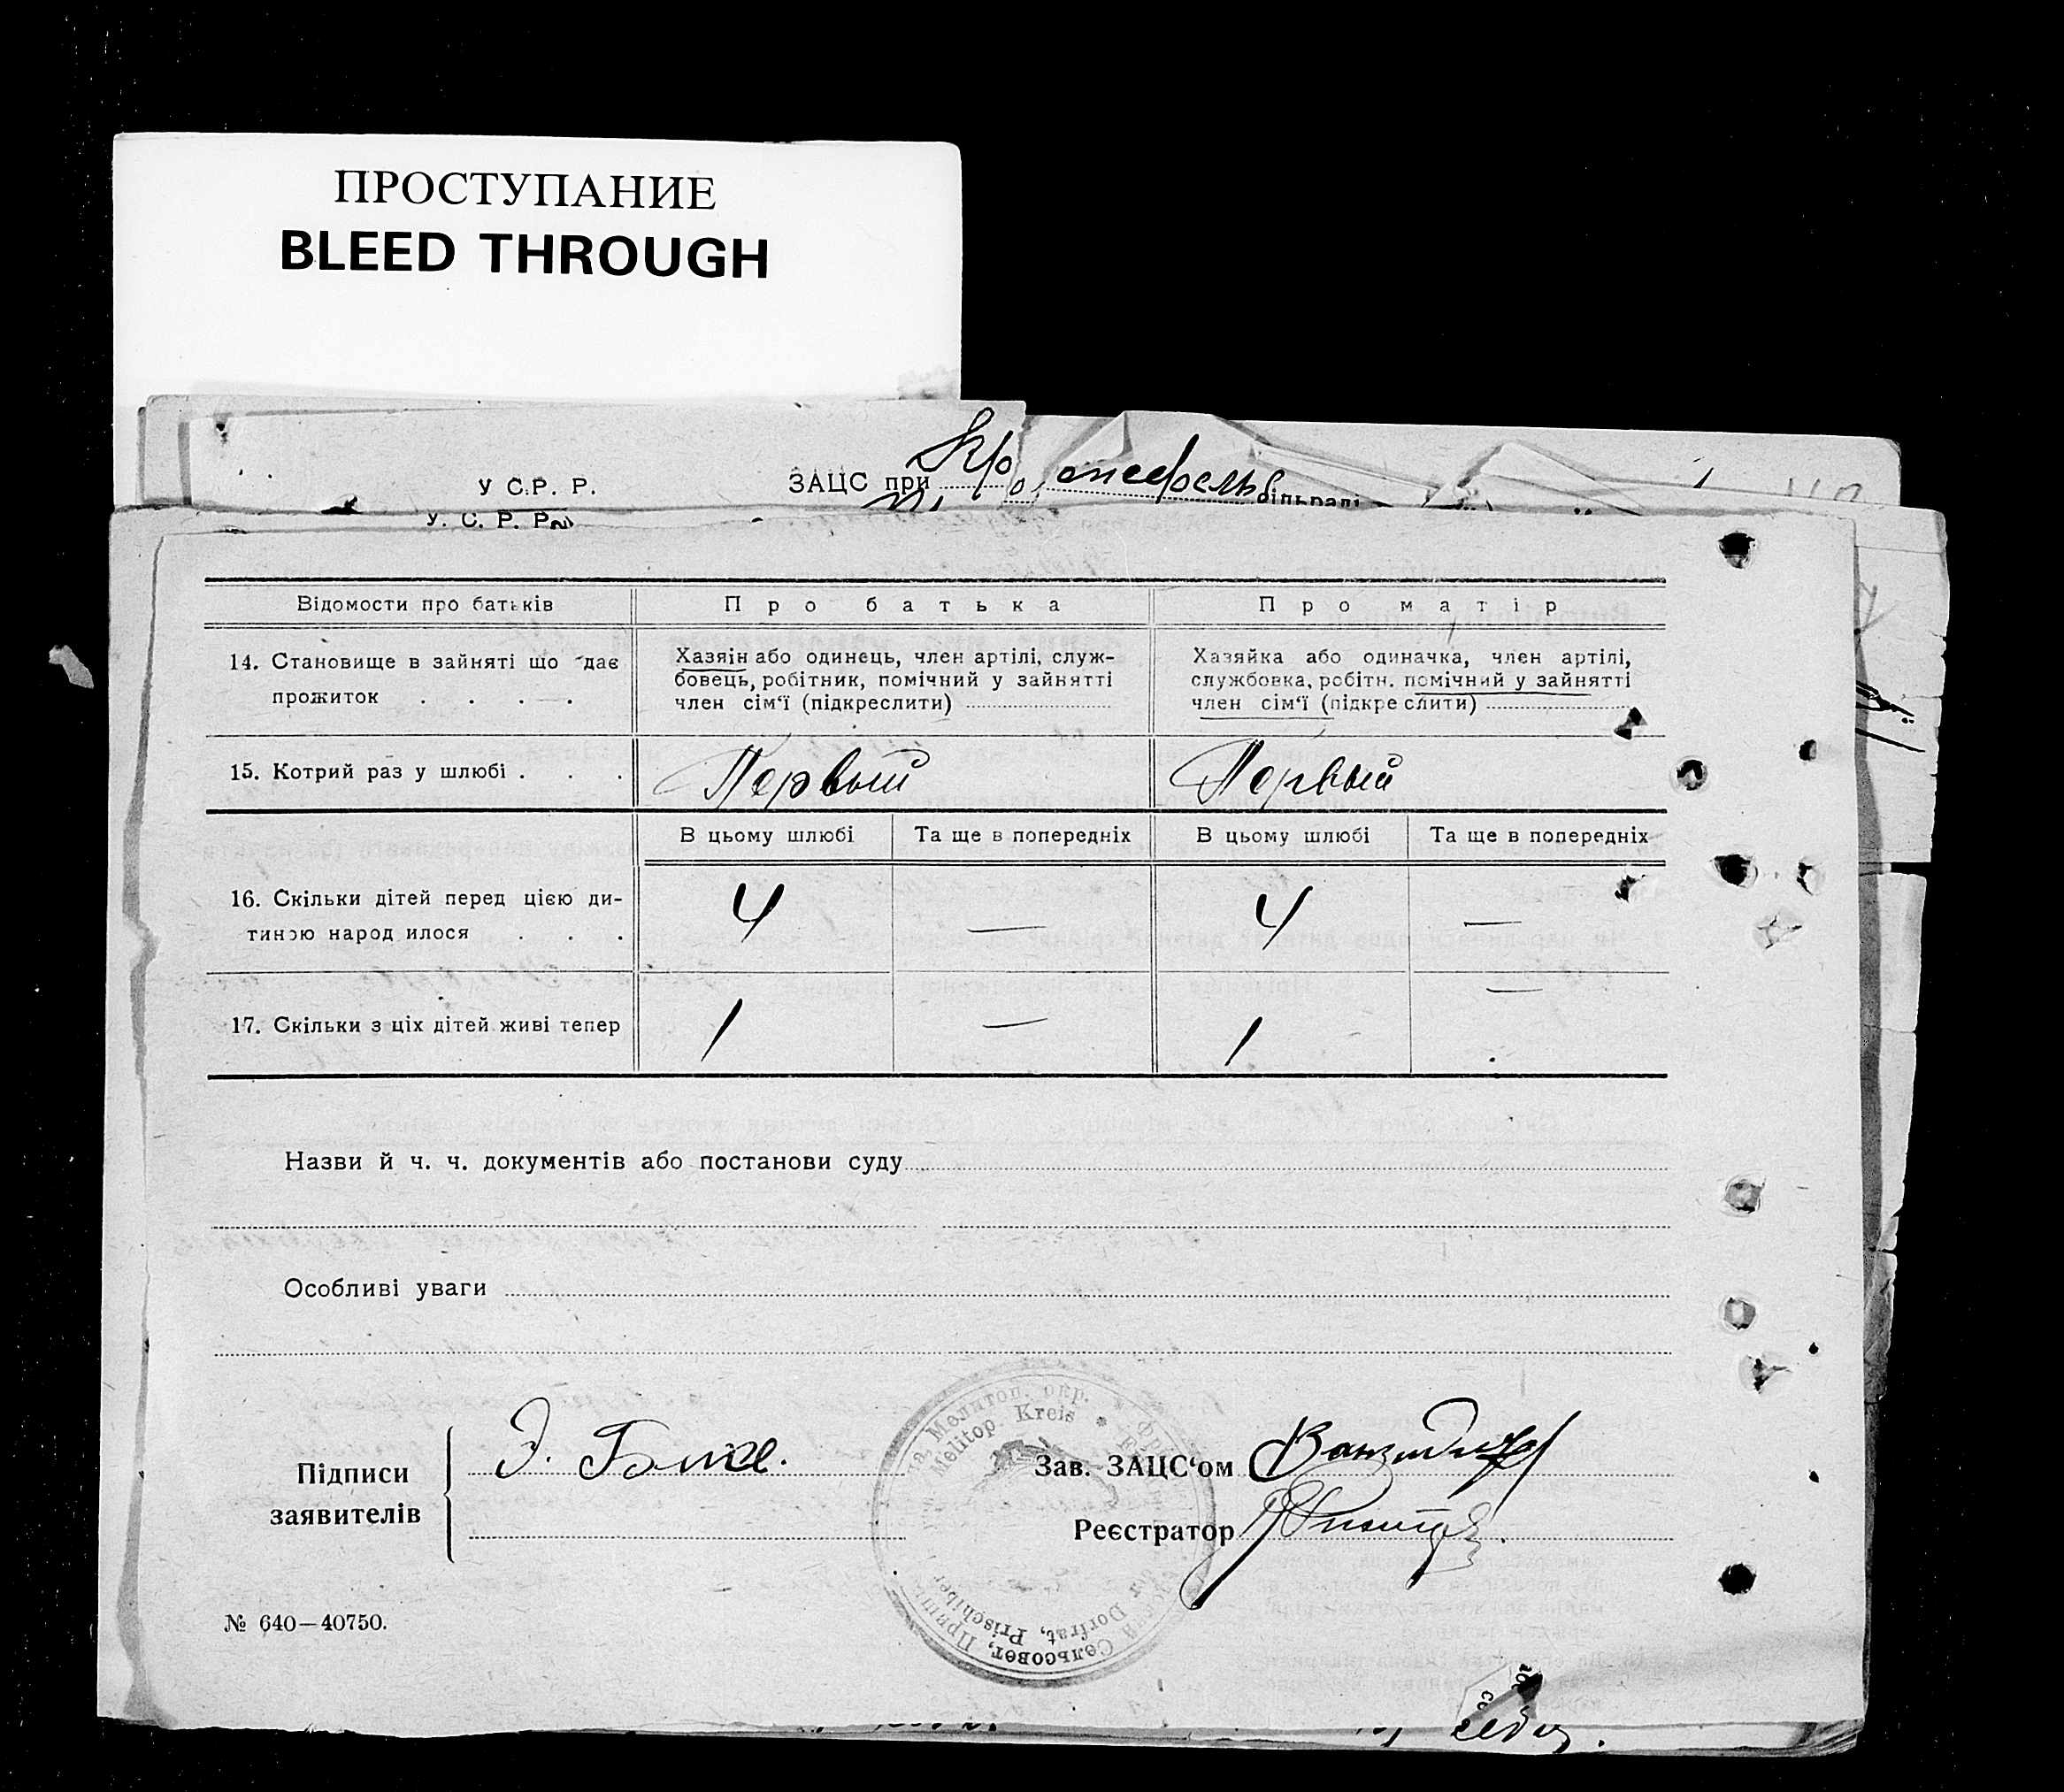 ПРОСТУПАНИЕ
BLEED THROUGH
У С.Р. Р.
ЗАЦС при
У. С. Р. Р.
Відомости про батьків
Про батька
Про матір
14. Становище в зайняті що дає
прожиток . . . .
Хазяін або одинець, член артілі, служ-
бовець, робітник, помічний у зайнятті
член сім‘ї (підкреслити)
Хазяйка або одиначка, член артілі,
службовка, робітн. помічний у зайнятті
член сім‘ї (підкреслити)
15. Котрий раз у шлюбі . . .
Первый
Первый
В цьому шлюбі
Та ще в попередніх
В цьому шлюбі
Та ще в попередніх
16. Скільки дітей перед цією ди-
тиною народилося . . .
4
—
4
—
17. Скільки з ціх дітей живі тепер
1
—
1
—
Назви й ч. ч. документів або постанови суду
Особливі уваги
Підписи
заявителів
Э.
Зав. ЗАЦС‘ом
Реєстратор
Мелитоп. окр.
Melitop. Kreis
Сельсовет,
Dorfrat, Prischiber
№ 640—40750.